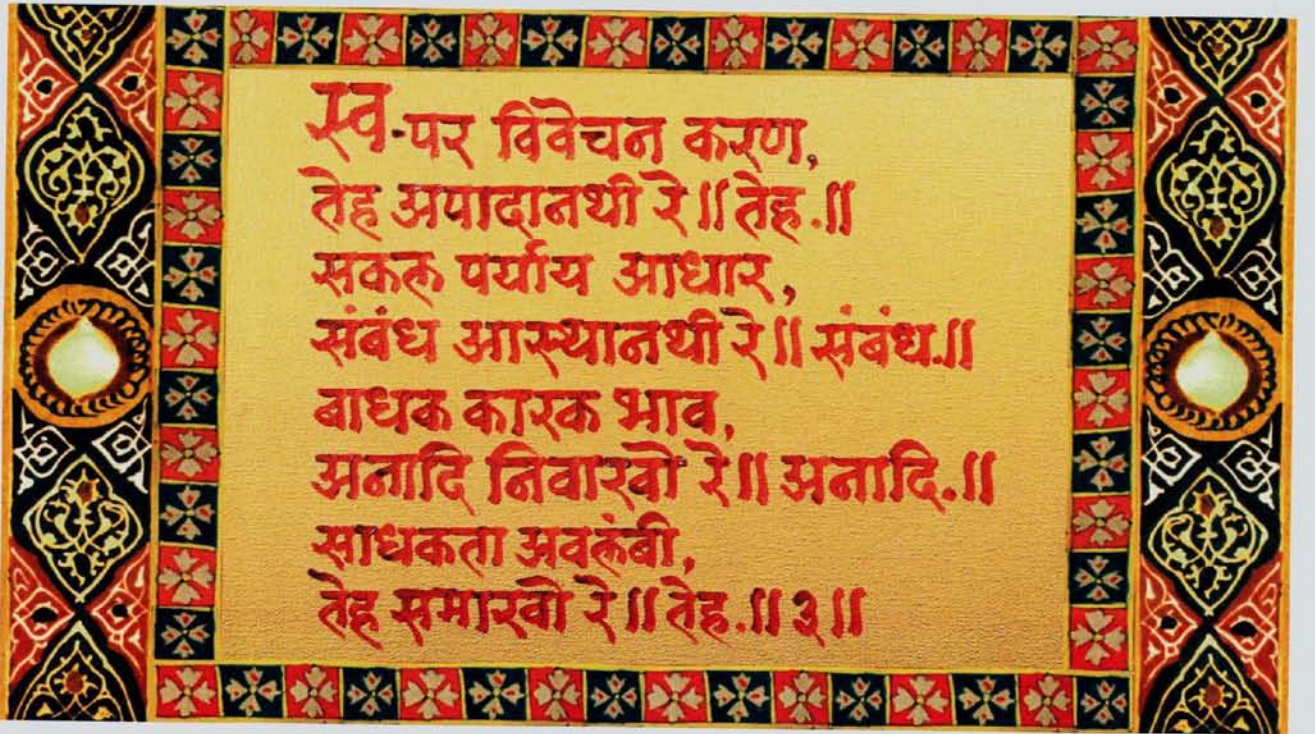 स्व-पर विवेचन करण,
तेह अपादानथी रे॥ तेह.॥
सकल पर्याय आधार,
संबंध आस्थानथी रे॥ संबंध.॥
बाधक कारक भाव,
अनादि निवारवो रे॥ अनादि.॥
साधकता अवलंबी,
तेह समारवो रे॥ तेह.॥३॥